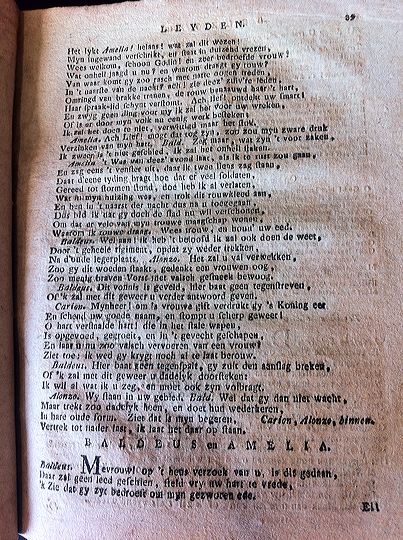 LEYDEN. 89
Het lykt Amelia! helaas! wat zal dit wezen!
Myn ingewand verschrikt, en staat in duizend vrezen,
Wees welkom, schoon Godin! en zeer bedroefde vrouw!
Wat onheil jaagd u nu? en waarom draagt gy rouw?
Van waar komt gy zoo rasch met natte oogen treden,
In 't naarste van de nacht? ach! zie deez' zuiv're leden,
Omringd van brakke tranen, de rouw benaauwd haar 't hart,
Haar spraak-lid schynt verstomt. Ach lief! ontdekt uw smart!
En zwyg geen ding voor my ik zal het voor uw wreken,
Of is er door myn volk nu eenig werk besteken?
Ik zal het doen te niet, verwittigd maar het stuk
Amelia. Ach Lief! mogt dat tog zyn, zoo zou myn zware druk
Verzaken van myn hart. Bald. Zeg maar, wat zyn 't voor zaken,
Ik zweer is 't niet geschied, ik zal het onheil staken.
Amelia. 't Was van deez' avond laat, als ik te rust zou gaan,
En zag eens 't venster uit, daar ik twee stens zag staan,
Daar deene tyding bragt hoe dat er veel soldaten,
Gereed tot stormen stond, doe lieb ik al verlaten,
Wat in myn huizing was, en trok dit rouwkleed aan,
En ben in 't naarst der nacht dus na u toegegaan,
Dus bid ik dat gy doch de stad nu wil verschoonen,
Om dat er velo van myn trouwe maagschap wonen,
Waarom ik zoo zeer klaag. Wees trouw, en houd uw eed.
Baldeus. Wel aan! ik heb 't beloofd ik zal ook doen de weet,
Door 't geheele rigiment, opdat zy weder trekken
Na d'oude legerplaats. Alonzo. Het zal u val verwekken,
Zoo gy dit woorden staakt, gedenkt een vrouwen oog,
Zoo menig braven Vorst niet valsch gestreelt bewoog.
Baldeus. Dit vonnis is geveld, hier baat geen tegenstreven,
Of 'k zal met dit geweer u verder antwoord geven.
Carion. Mynheer! om 1 a vrouwe gift verdrukt gy 's Koning eer
En schend uw goede naam, en stompt u scherp geweer!
O hart verstaalde hart! die in het stale wapen,
Is opgevoed, gegroeit, en in 't gevecht geschapen,
En laat u nu zoo valsch vervoeren van een vrouw?
Ziet toe! ik wed gy krygt noch al te laat berouw.
Baldeus. Hier baat geen tegenspalt, gy zult den aanslag breken,
Of 'k zal met dit geweer u dadelyk doorsteken:
Ik wil al wat ik u zeg, en moet ook zyn volbragt.
Alonzo. Wy staan in uw gebied. Bald. Wel dat gy dan niet wacht,
Maar trekt zoo dadelyk heen, en doet hun wederkeren,
In hare oude form. Zie dat is myn begeren. Carlon, Alonzo, binnen.
Vertrek tot nader last, ik laat het daar op staan.
BALDEUS EN AMELIA.
Baldeus. Mevrouw! op 't heus verzoek van u, is dit gedaan,
Daar zal geen leed geschien, steld vry uw hart te vrede,
'k Zie dat gy zyt bedroeft om myn gezworen ede.
Ell